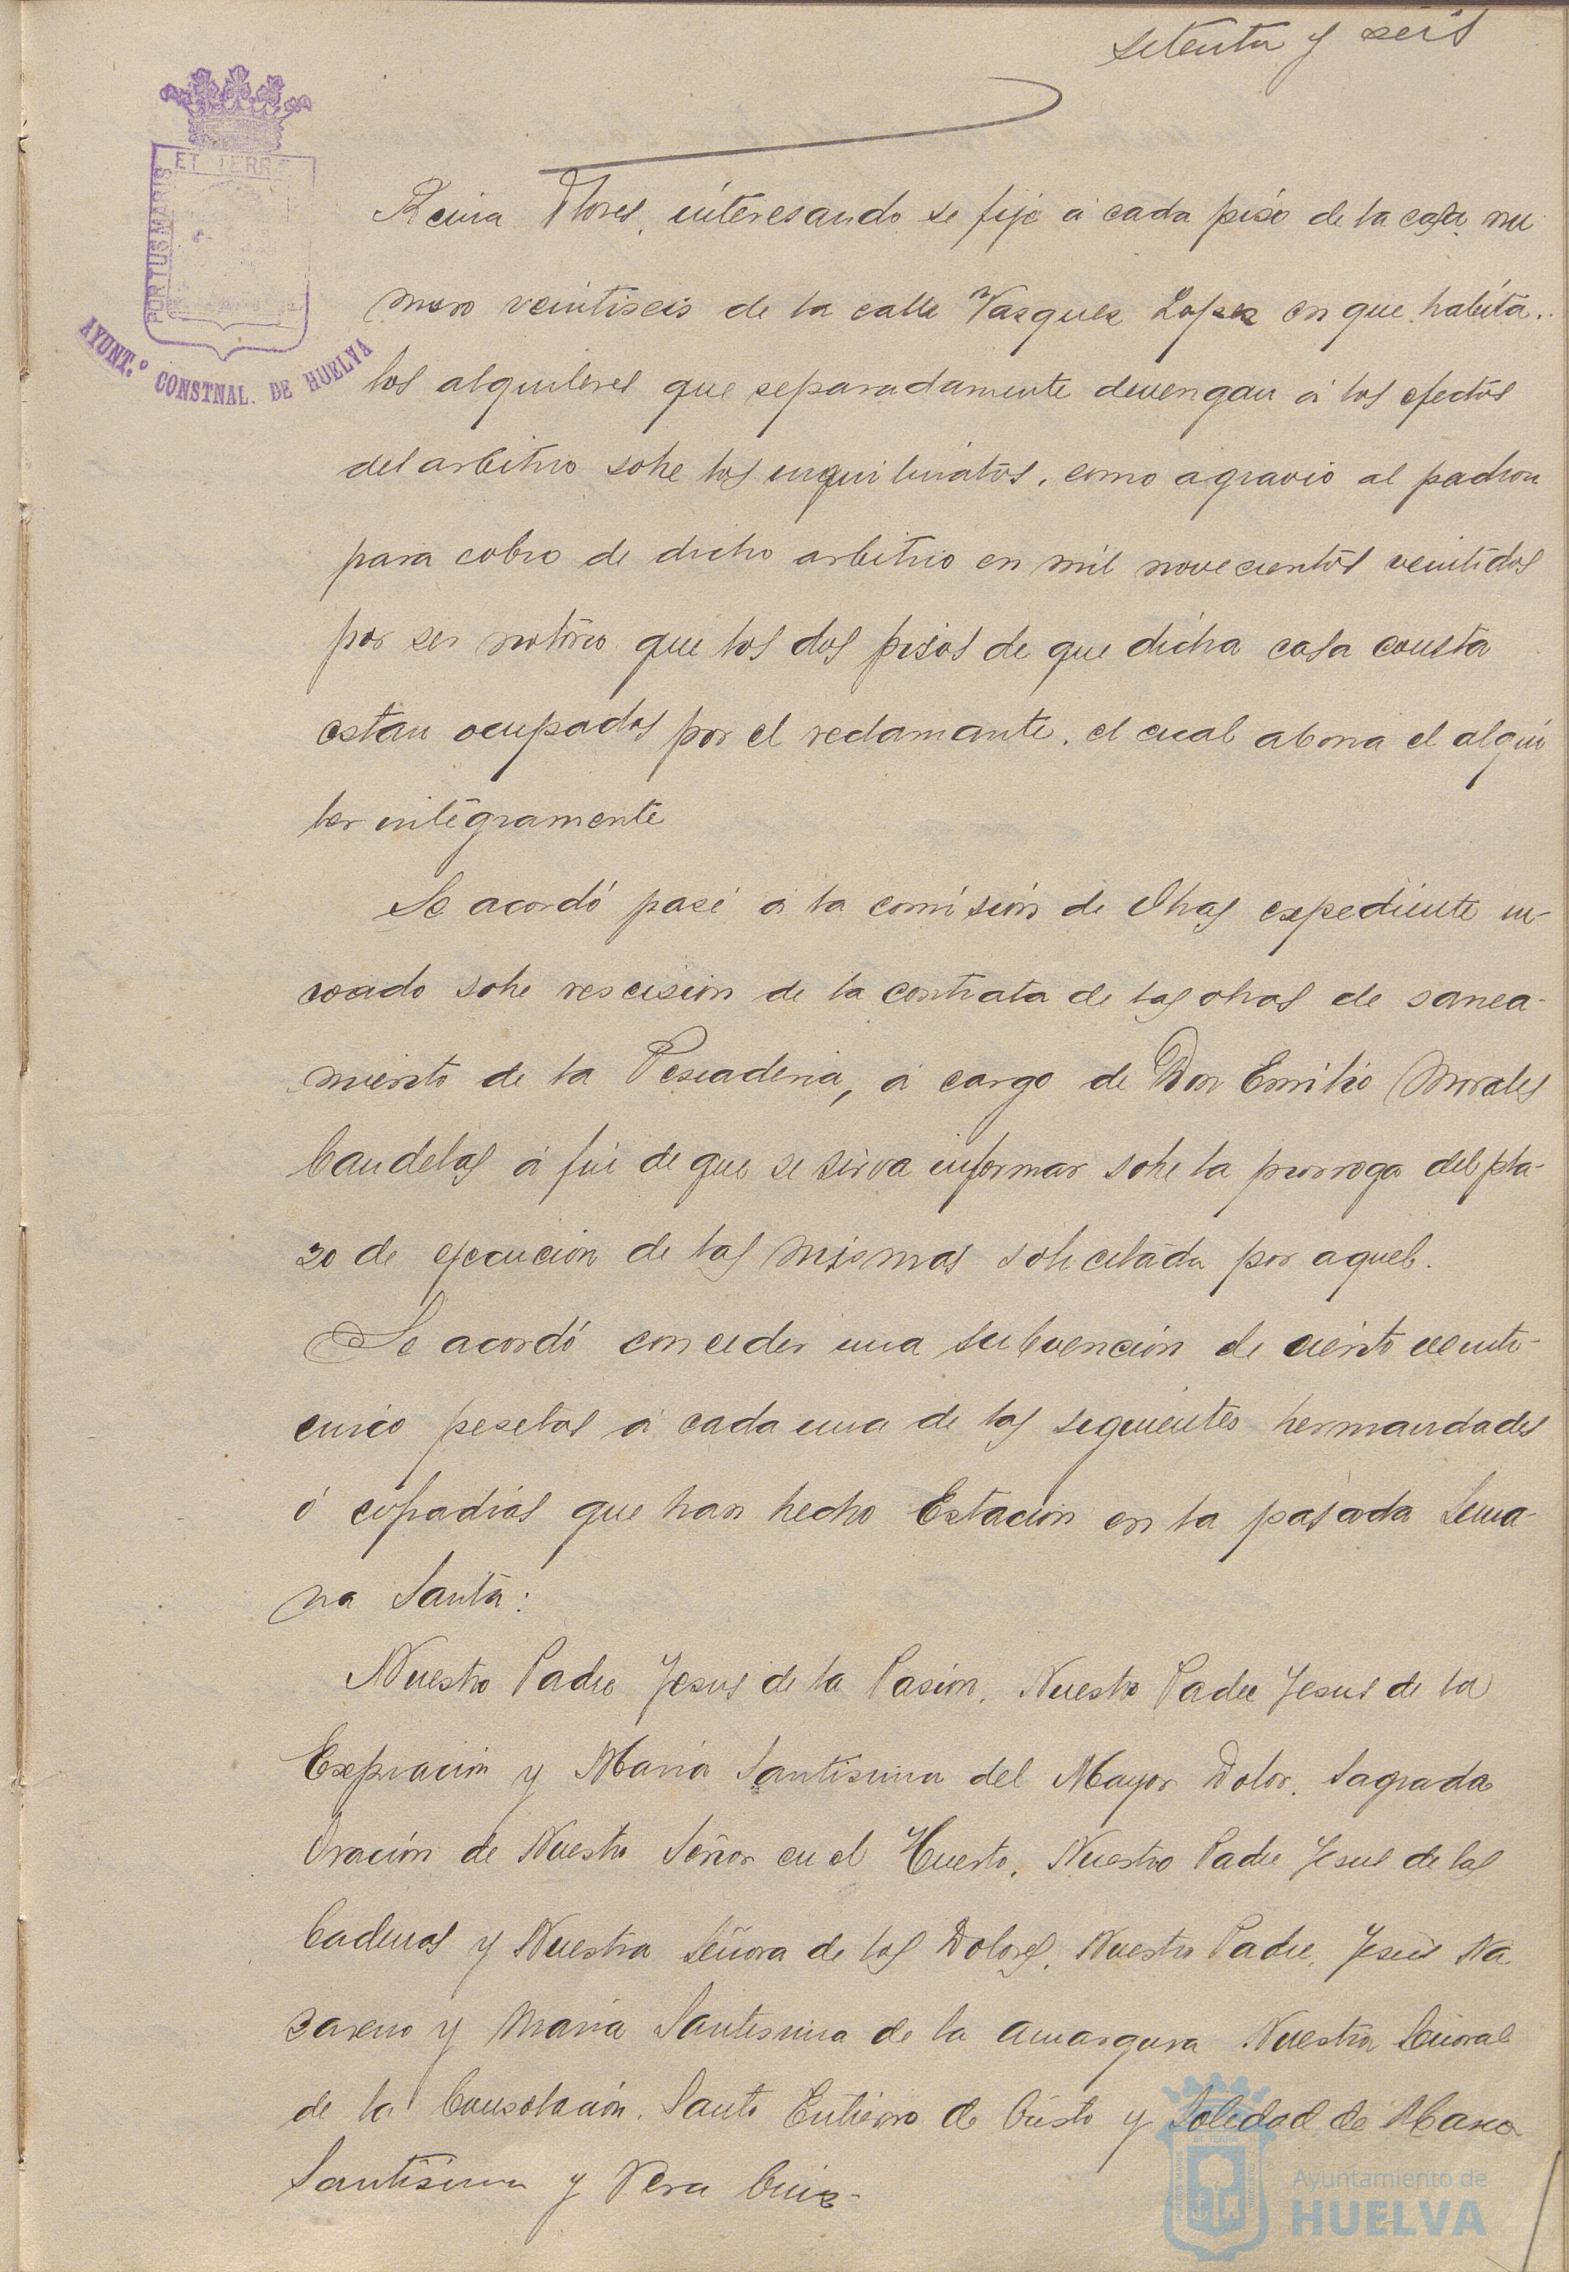 setenta y seis
ET TERRÆ
PORTUS MARIS
AYUNT.º CONSTNAL. DE HUELVA
Reina Flores, interesando se fije á cada piso de la casa nu
mero veintiseis de la calle Vazquez Lopez en que habita.
los alquileres que separadamente devengan á los efectos
del arbitrio sobre los inquilinatos, como agravio al padron
para cobro de dicho arbitrio en mil novecientos veintidos
por ser notorio que los dos pisos de que dicha casa consta
estan ocupados por el reclamante, el cual abona el alqui
ler integramente
Se acordó pase á la comisión de Obras expediente in-
coado sobre rescision de la contrata de las obras de sanea-
miento de la Pescaderia, á cargo de Don Emilio Morales
Candelas á fin de que se sirva informar sobre la prorroga del pla-
zo de ejecución de las mismas solicitada por aquel.
Se acordó conceder una subvención de ciento veinti-
cinco pesetas á cada una de las siguientes hermandades
ó cofradias que han hecho Estación en la pasada Sema-
na Santa:
Nuestro Padre Jesus de la Pasión, Nuestro Padre Jesus de la
Expiración y Maria Santisima del Mayor Dolor, Sagrada
Oración de Nuestro Señor en el Huerto, Nuestro Padre Jesus de las
Cadenas y Nuestra Señora de los Dolores, Nuestro Padre, Jesús Na
zareno y Maria Santisima de la Amargura Nuestra Señora
de la Consolación, Santo Entierro de Cristo y Soledad de Maria
Santisima y Vera Cruz-
Ayuntamiento de
HUELVA